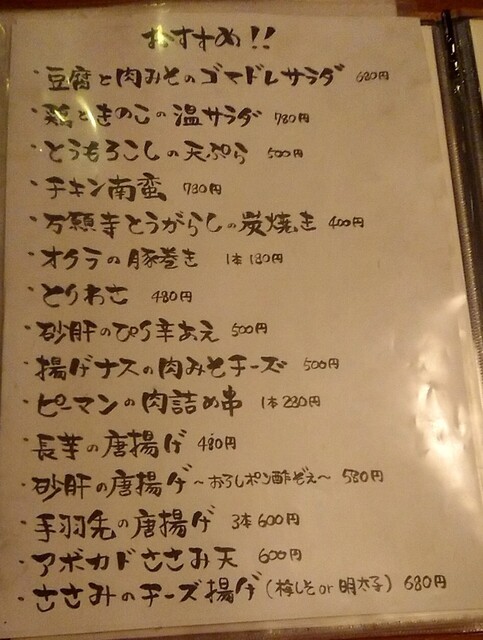 おすすめ!!
・豆腐と肉みそのゴマドレサラダ 680円
・鶏ときのこの温サラダ 780円
・とうもろこしの天ぷら 500円
・チキン南蛮 780円
・万願寺とうがらしの炭焼き 400円
・オクラの豚巻き 1本180円
・とりわさ 480円
・砂肝のぴり辛あえ 500円
・揚げナスの肉みそチーズ 500円
・ピーマンの肉詰め串 1本230円
・長芋の唐揚げ 480円
・砂肝の唐揚げ 〜おろしポン酢ぞえ〜 580円
・手羽先の唐揚げ 3本600円
・アボカドささみ天 600円
・ささみのチーズ揚げ(梅しそor明太子) 680円